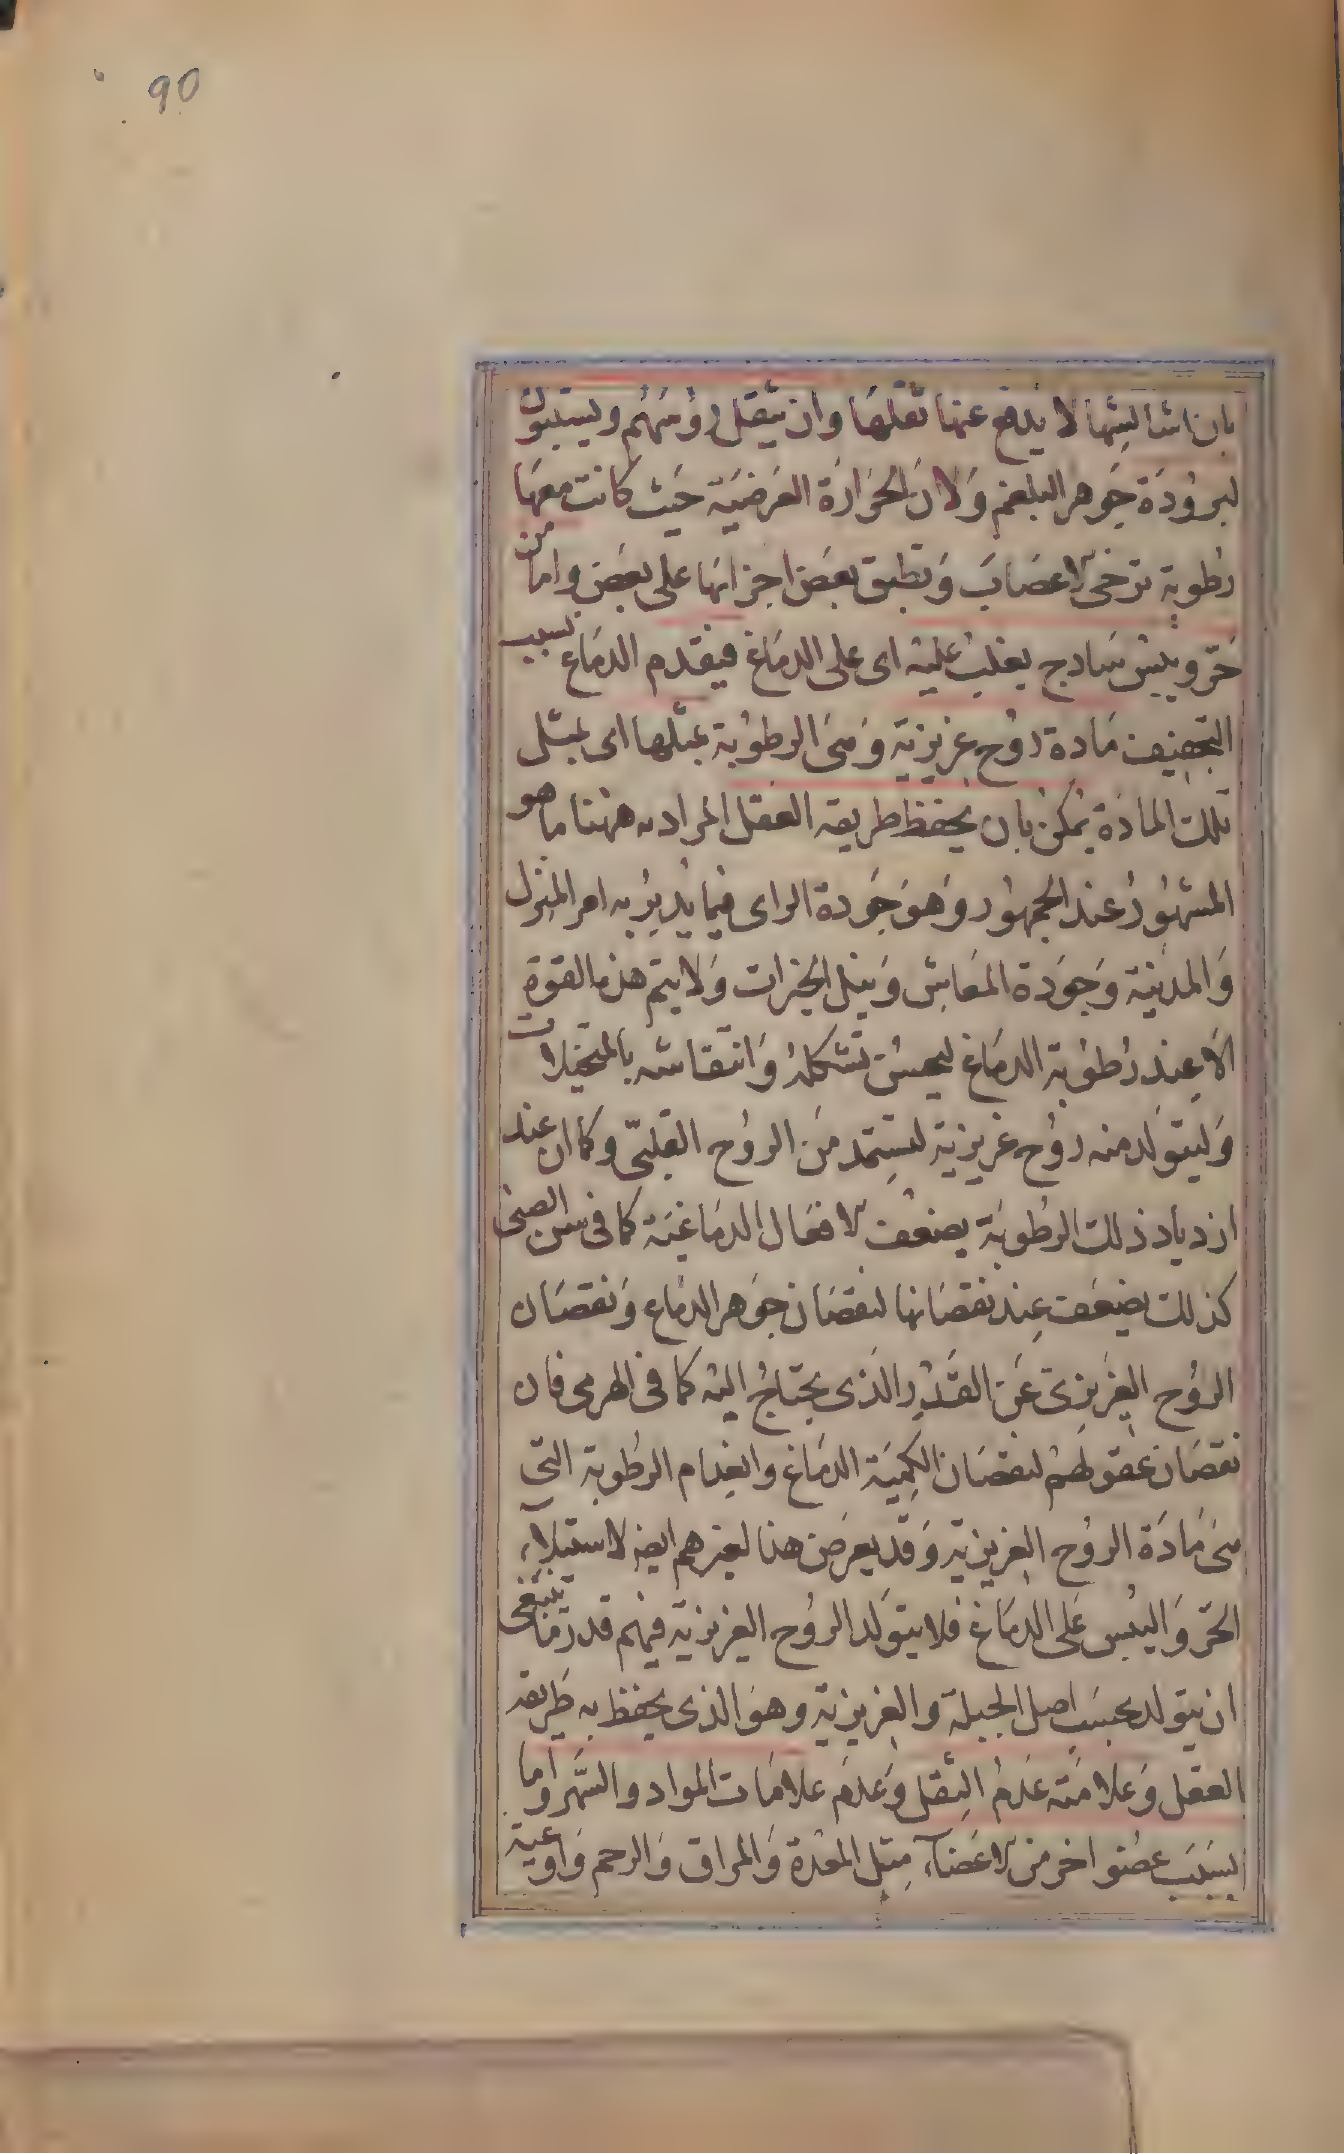 90
بان اشالتها لا يدفع عنها ثقلها وان يثقل رؤسهم ويستبتون
لبرودة جوهر البلغم ولان الحرارة العرضية حيث كانت معها
رطوبة ترخى الاعصاب وتطبق بعض اجزائها على بعض واما من
حر ويبس سادج يغلب عليه اى على الدماغ فيقدم الدماغ بسبب
التجفيف مادة روح غريزية وهى الرطوبة بمثلها اى بمثل
تلك المادة يمكن بان يحفظ طريقه العقل المراد به ههنا ما هو
المشهور عند الجمهور وهو جودة الراى فيما يدبر به امر المنزل
والمدنية وجودة المعاش ونيل الخيرات ولا يتم هذه القوة
الا عند رطوبة الدماغ ليحسن تشكله وانتقاشه بالمتخيلات
وليتولد منه روح غريزية لستمد من الروح القلبى وكما ان عند
ازدياد ذلك الرطوبة يضعف الافعال الدماغية كما فى سن الصبى
كذلك يضعف عند نقصانها لنقصان جوهر الدماغ ونقصان
الروح الغريزى عن القدر الذى يحتاج اليه كما فى الهرمى فان
نقصان عقولهم لنقصان الكمية الدماغ وانعدام الرطوبة التى
هى مادة الروح الغريزية وقد يعرض هذا لغيرهم ايضا لاستيلاء
الحر واليبس على الدماغ فلا يتولد الروح الغريزية فيهم قدر ما ينبغى
ان يتولد بحسب اصل الجبلة والغريزية وهو الذى يحفظ به طريقه
العقل وعلامته عدم الثقل وعدم علامات المواد والسهر واما
بسبب عضو اخر من الاعضاء مثل المعدة والمراق والرحم واوعية